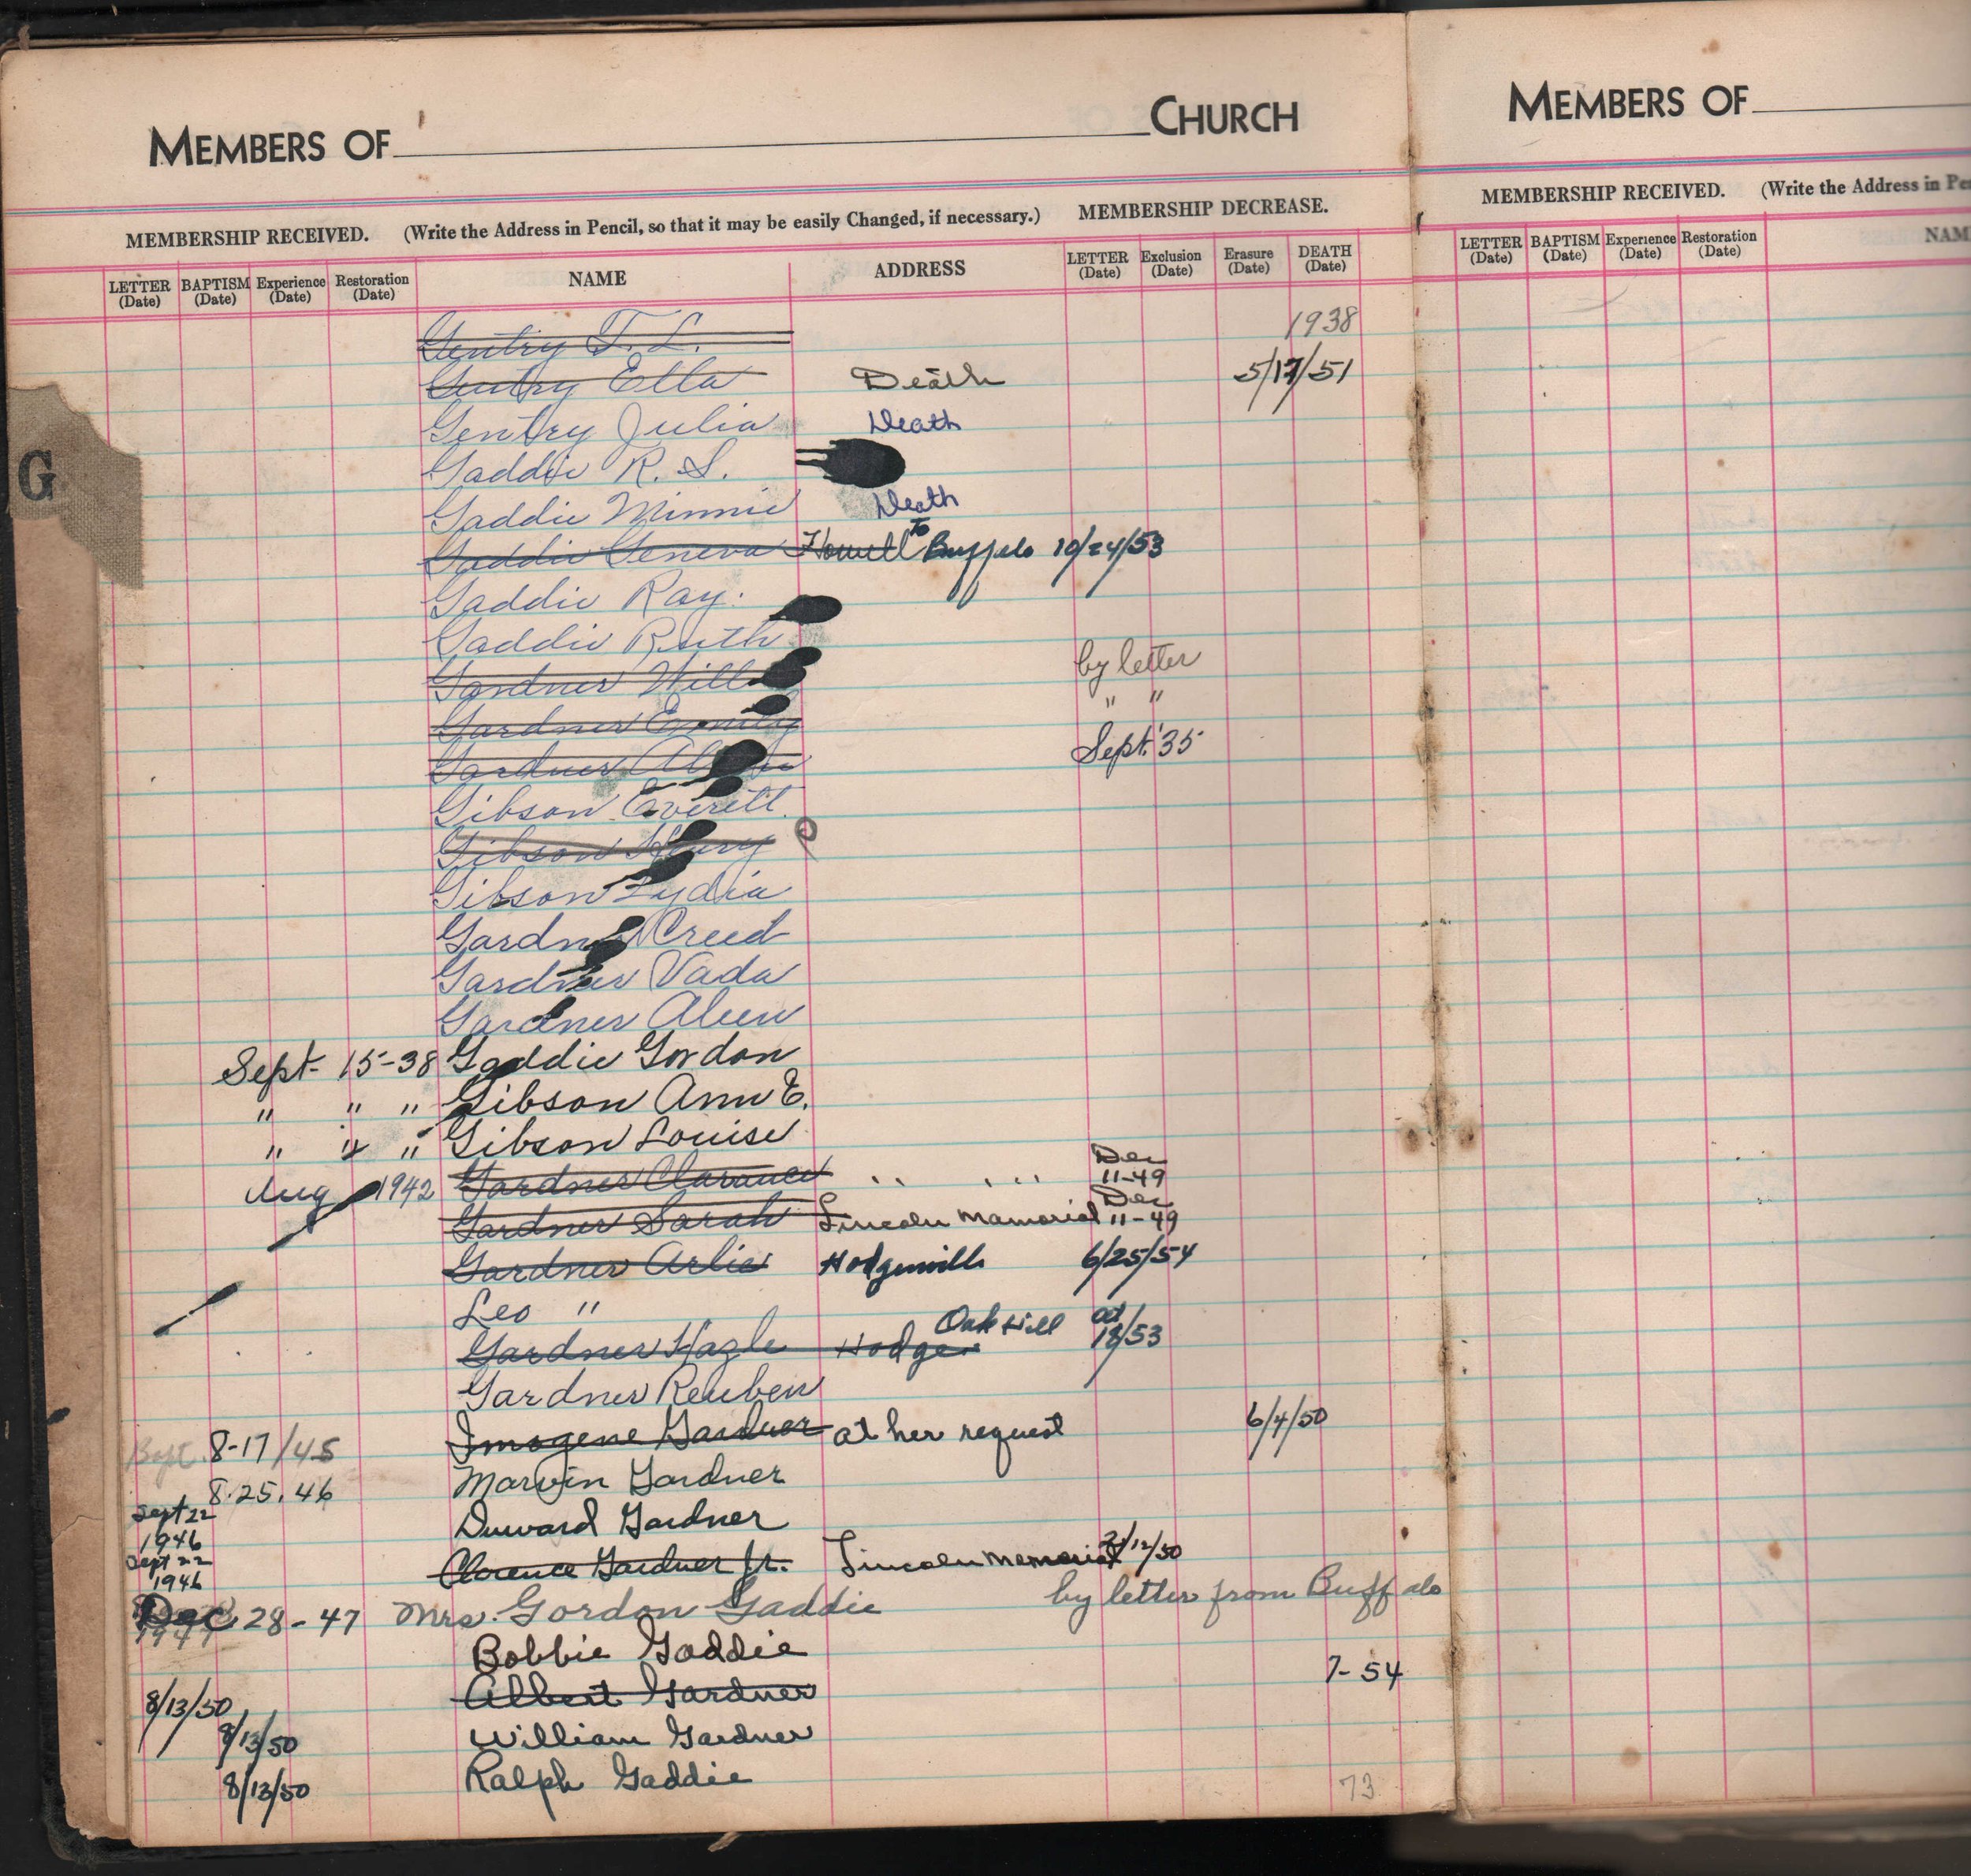 MEMBERS OF CHURCH
MEMBERSHIP RECEIVED. (Write the Address in Pencil, so that it may be easily Changed, if necessary.) MEMBERSHIP DECREASE.
LETTER (Date) BAPTISM (Date) Experience (Date) Restoration (Date) NAME ADDRESS LETTER (Date) Exclusion (Date) Erasure (Date) DEATH (Date)
Gentry T. L. 1938
Gentry Ella Death 5/17/51
Gentry Julia Death
Gaddie R. S.
Gaddie Minnie Death
Gaddie Geneva Howell to Buffalo 10/24/53
Gaddie Ray.
Gaddie Ruth
Gardner Will by letter
Gardner Emily " "
Gardner Sept. '35
Gibson Everett
Gibson Henry
Gibson Lydia
Gardner Creed
Gardner Vada
Gardner Aleen
Sept- 15-38 Gaddie Gordon
" " " Gibson Ann E.
" " " Gibson Louise
Aug 1942 Gardner Clarance Dec 11-49
Gardner Sarah Lincoln Memorial Dec 11-49
Gardner Arlie Hodgenville 6/25/54
Leo "
Gardner Hazle Hodge. Oak Hill Oct 18/53
Gardner Reuben
Bapt. 8-17/45 Imogene Gardner at her request 6/4/50
8.25.46 Marvin Gardner
Sept 22 1946 Duward Gardner
Sept 22 1946 Clarence Gardner Jr. Lincoln Memorial 2/12/50
Dec 28-47 Mrs. Gordon Gaddie by letter from Buffalo
1947 Bobbie Gaddie
8/13/50 Albert Gardner 7-54
8/13/50 William Gardner
8/13/50 Ralph Gaddie
73
G
MEMBERS OF
MEMBERSHIP RECEIVED. (Write the Address in
LETTER (Date) BAPTISM (Date) Experience (Date) Restoration (Date)